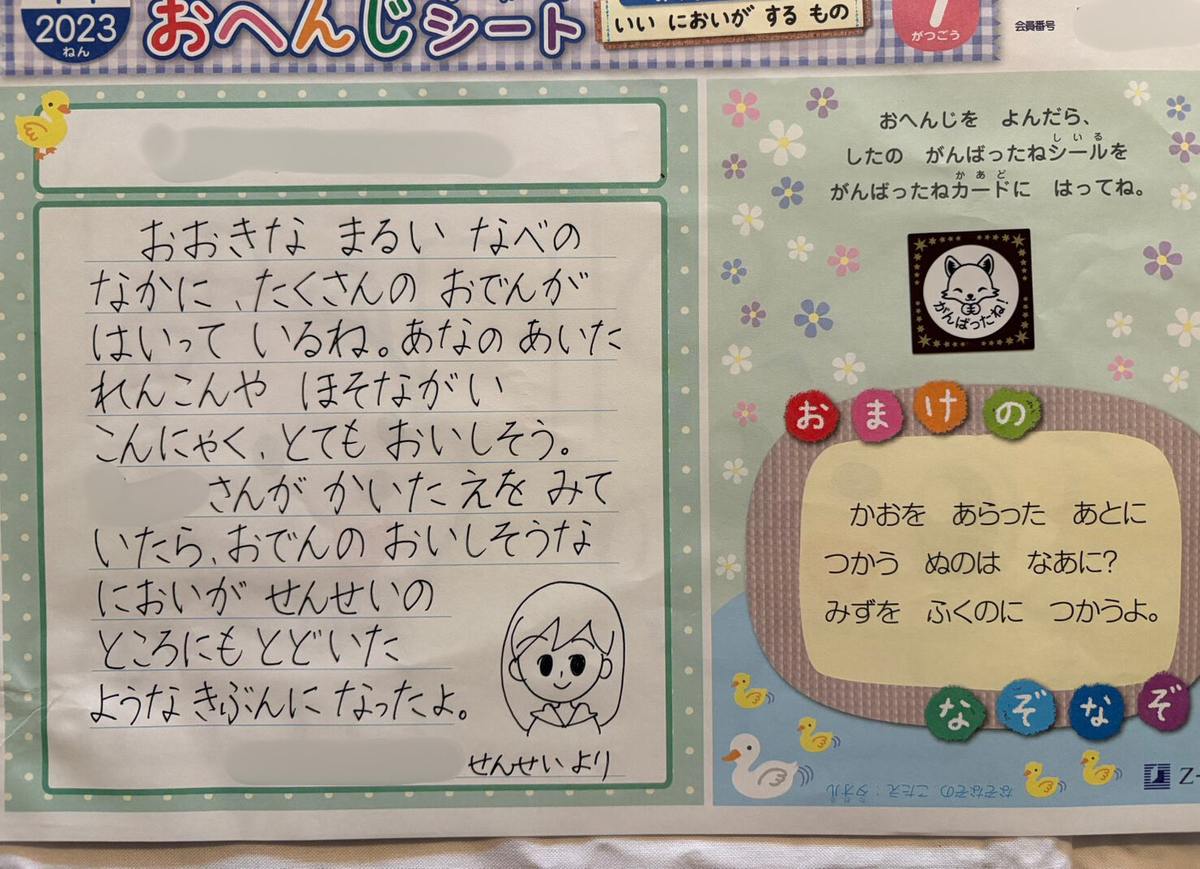 2023
ねん
おへんじシート
いい においが する もの
7
がつごう
会員番号
おおきな まるい なべの
なかに、たくさんの おでんが
はいって いるね。あなの あいた
れんこんや ほそながい
こんにゃく、とても おいしそう。
さんが かいた えを みて
いたら、おでんの おいしそうな
においが せんせいの
ところにも とどいた
ような きぶんに なったよ。
せんせい より
おへんじを よんだら、
したの がんばったねシールを
しいる
がんばったねカードに はってね。
かあど
がんばったね!
おまけの
かおを あらった あとに
つかう ぬのは なあに?
みずを ふくのに つかうよ。
なぞなぞ
なぞなぞの こたえ:タオル
Z-